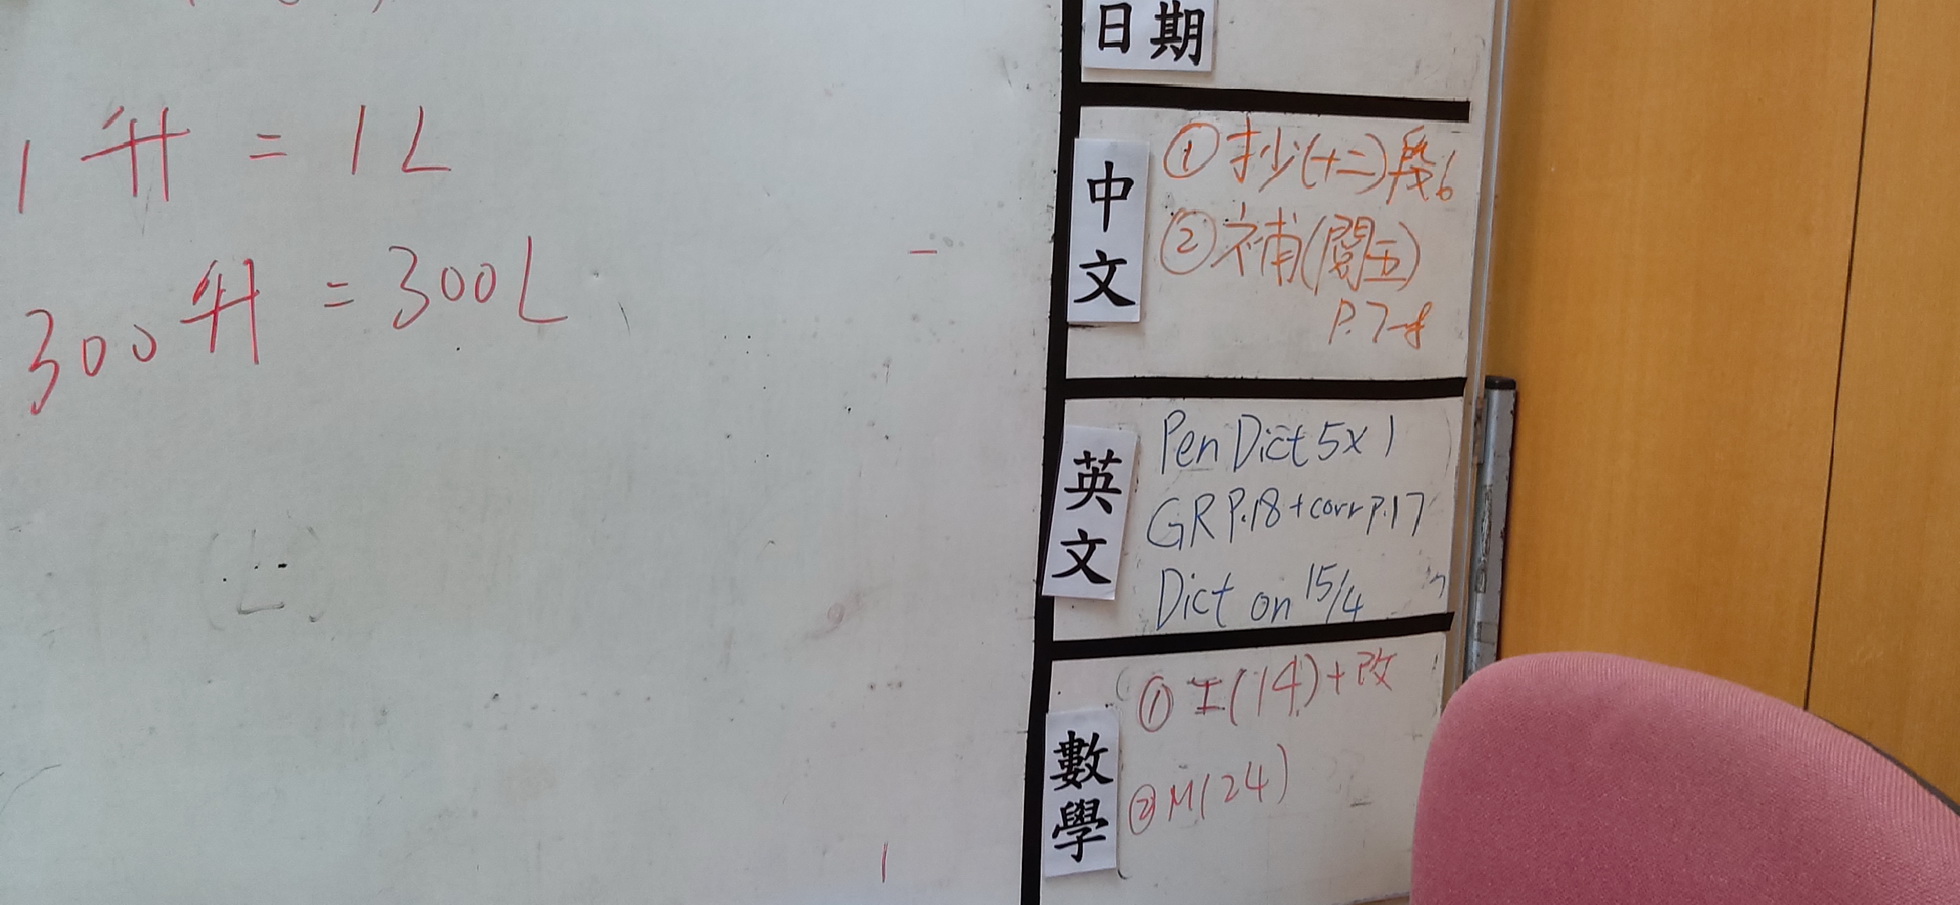 1升 = 1L
300升 = 300L
日期
中文
① 抄(十二)段6
② 補(閱五)
P.7-8
英文
Pen Dict 5x1
GR P.18 + corr P.17
Dict on 15/4
數學
① 工(14)+改
② M(24)